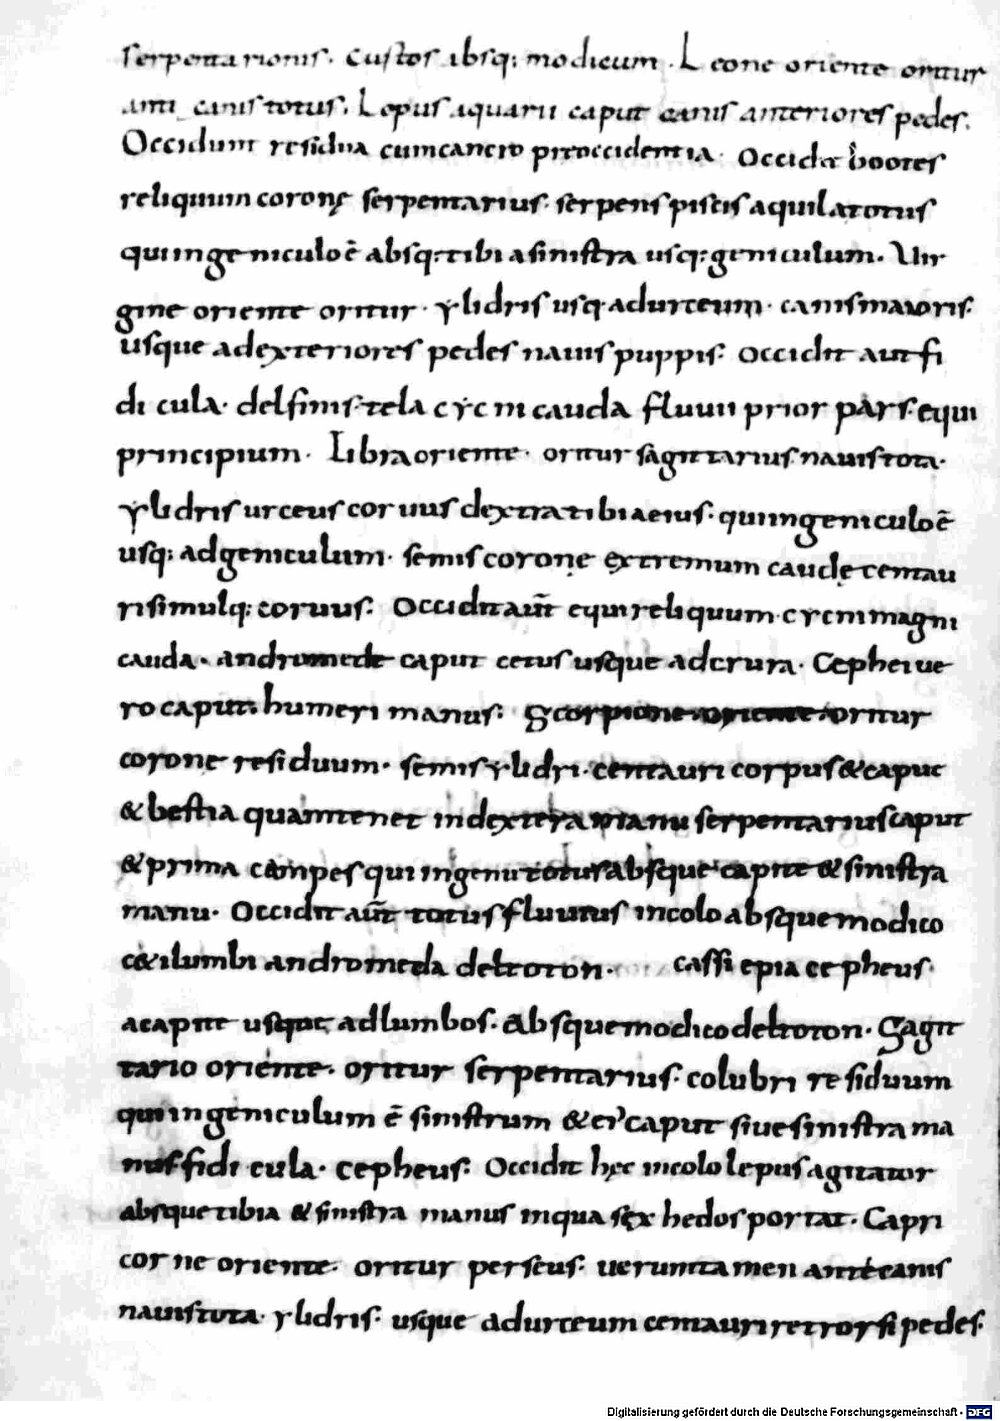 serpentarionis. custos absq; modicum. Leone oriente oritur
anti canis totus. Lepus aquarii caput canis anteriores pedes.
Occidunt residua cum cancro preoccidentia. Occidet bootes
reliquum coronę serpentarius. serpens piscis aquila totus
qui ingeniculo ē absq; tibi a sinistra usq; geniculum. Uir
gine oriente oritur. ylidris usq; ad urceum. canis maioris.
usque ad exteriores pedes nauis puppis. Occidit aut fi
di cula. delfinis. tela cycni cauda fluuii prior pars. equi
principium. Libra oriente. oritur sagittarius. nauis tota.
ylidris urceus coruus dextra tibia eius. qui ingeniculo ē
usq; ad geniculum. semis coronę extremum caudę centau
ri simulq; coruus. Occidit aūt equi reliquum. cycni magni
cauda. andromede caput cetus usque ad crura. Cephei ue
ro caput. humeri manus. Scorpione oriente. oritur
coronę residuum. semis ylidri. centauri corpus & caput
& bestia quam tenet in dextera manu serpentarius caput
& prima campes qui ingenu totus absque capite & sinistra
manu. Occidit aūt totus fluuius incolo absque modico
c&i lumbi andromeda deltoton. cassi epia cepheus.
a capite usque ad lumbos. Absque modico deltoton. Sagit
tario oriente. oritur serpentarius. colubri residuum
qui ingeniculum ē sinistrum & ei' caput siue sinistra ma
nus fidi cula. cepheus. Occidit hęc incolo lepus agitator
absque tibia & sinistra manus in qua sęx hedos portat. Capri
corne oriente. oritur perseus. uerumtamen ante canis
nauis tota. ylidris. usque ad urceum centauri retrorsi pedes.
Digitalisierung gefördert durch die Deutsche Forschungsgemeinschaft - DFG